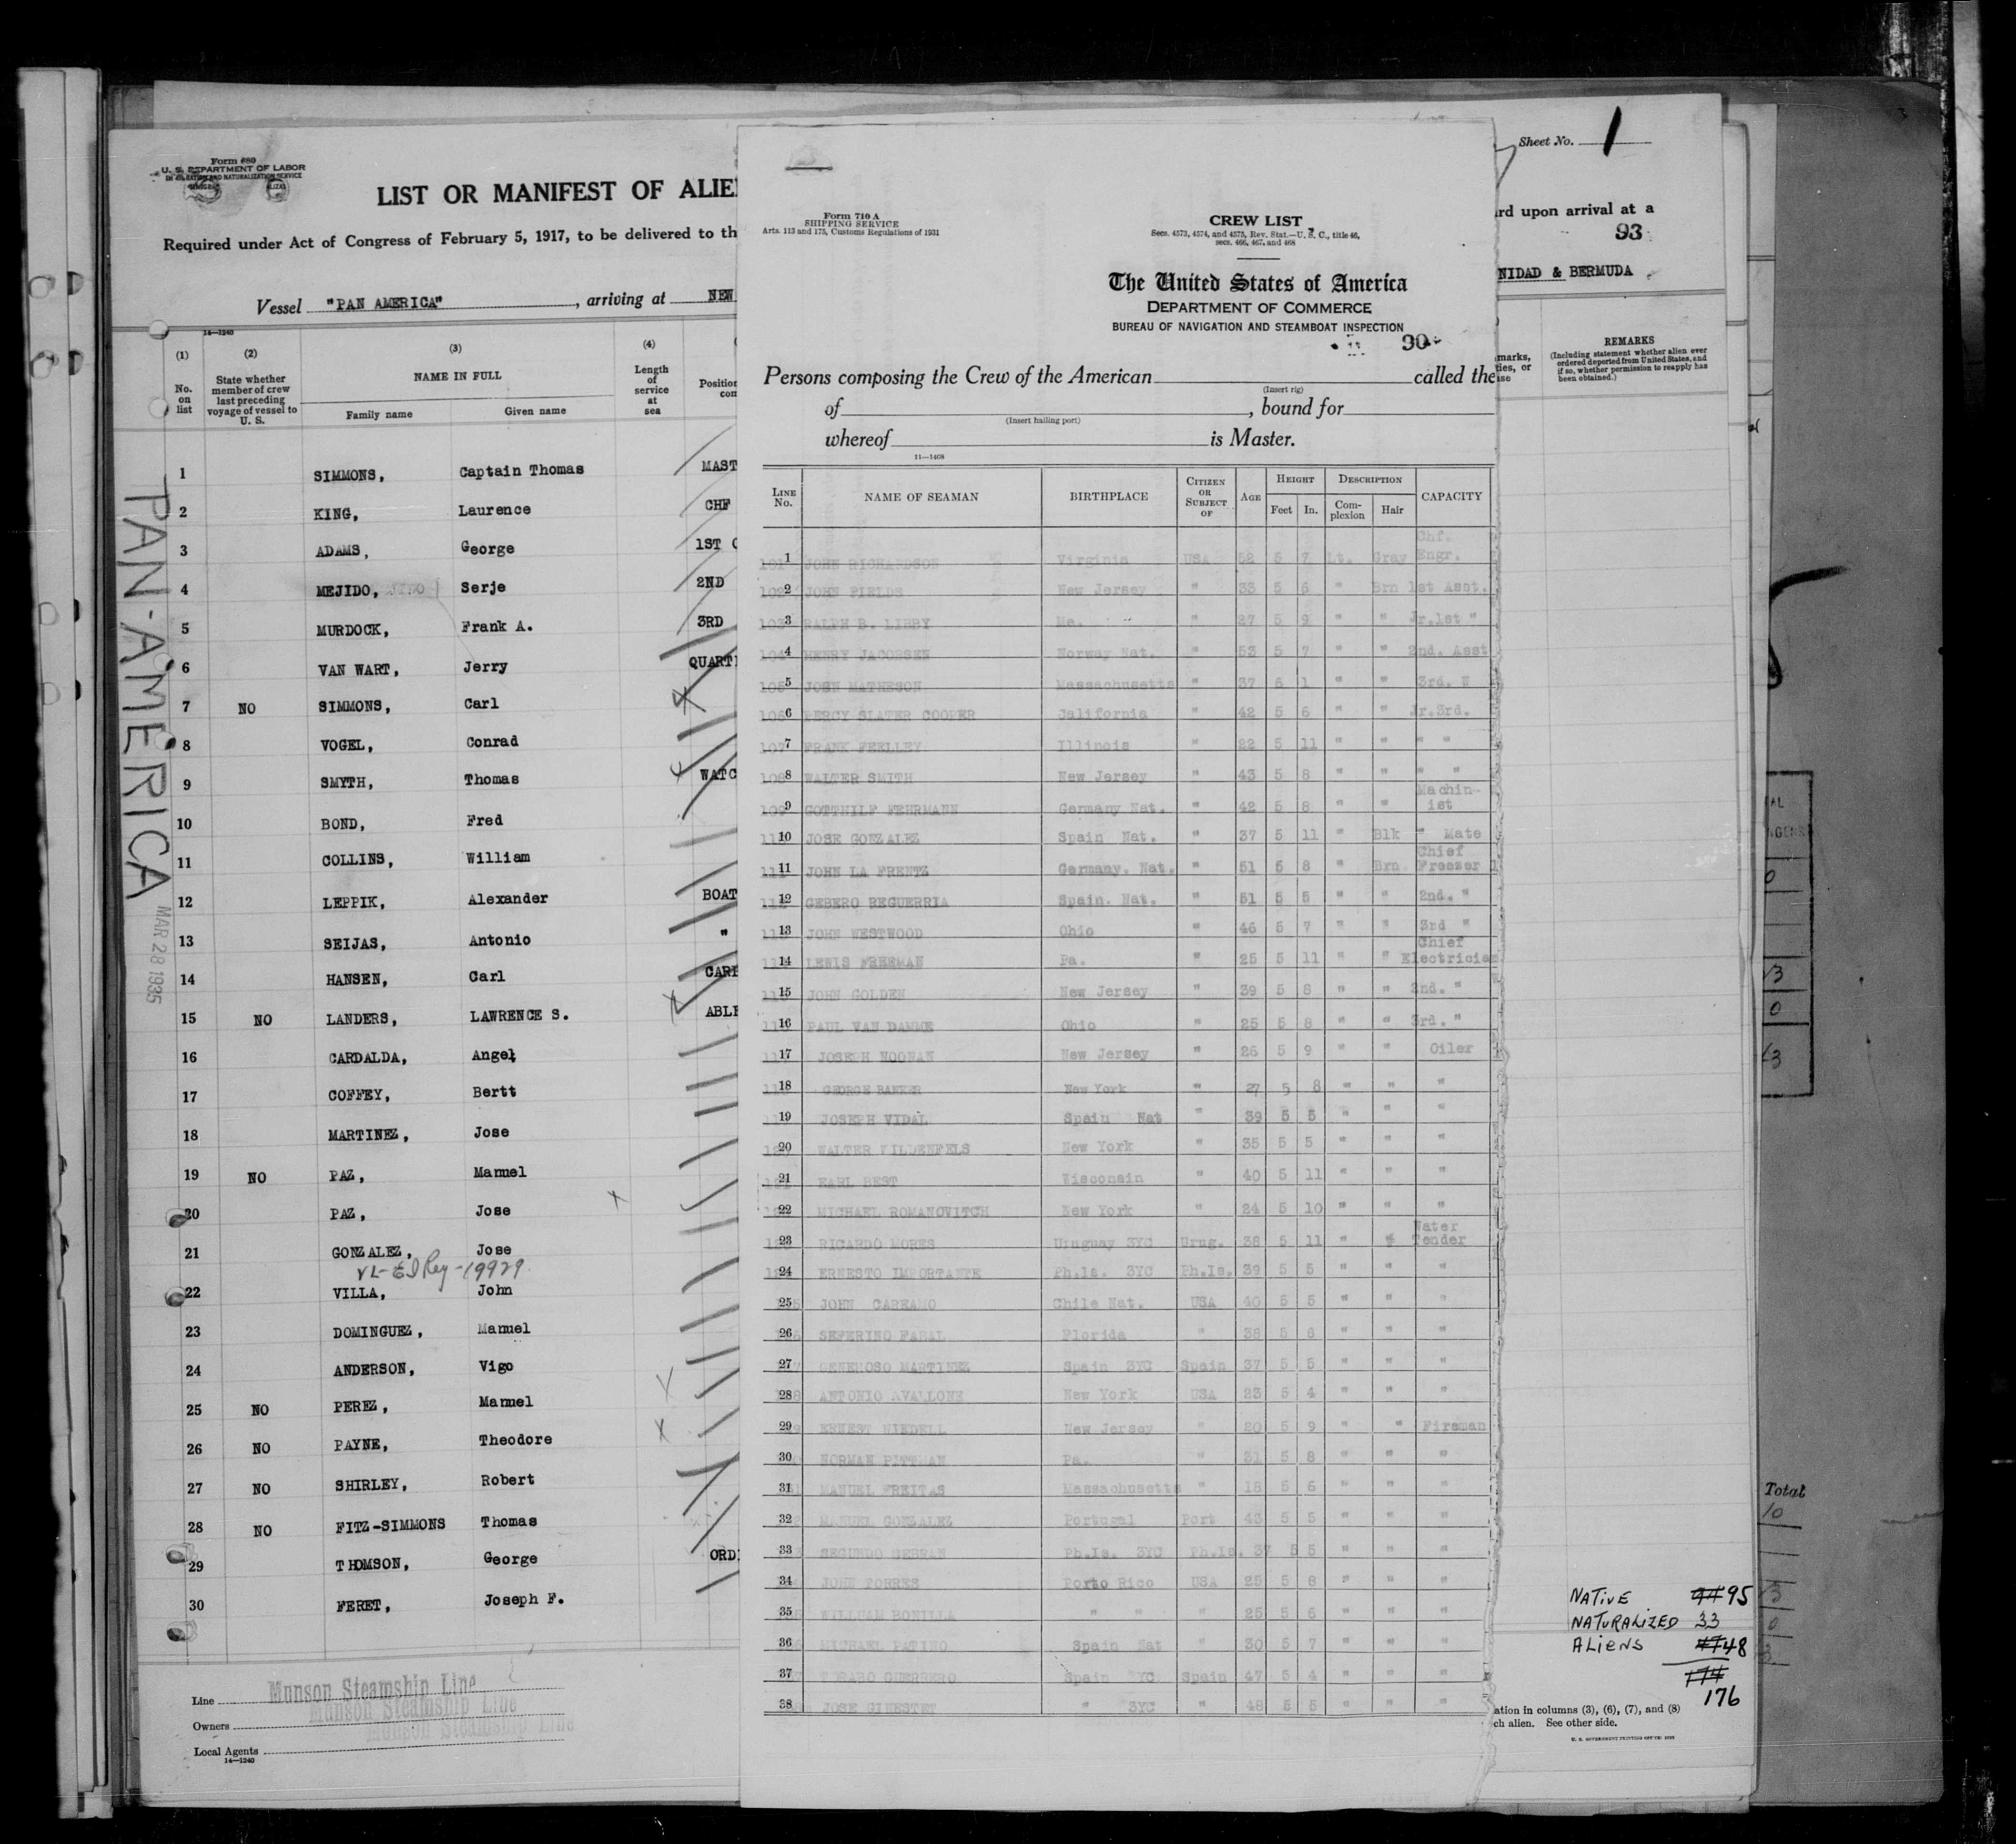 Form 680
U. S. DEPARTMENT OF LABOR
IMMIGRATION AND NATURALIZATION SERVICE
LIST OR MANIFEST OF ALIE
Required under Act of Congress of February 5, 1917, to be delivered to th
Vessel "PAN AMERICA", arriving at NEW
14—1240
(1) (2) (3) (4)
No. on list
State whether member of crew last preceding voyage of vessel to U. S.
NAME IN FULL
Family name Given name
Length of service at sea
Position
com
1 SIMMONS, Captain Thomas MAST
2 KING, Laurence CHF
3 ADAMS, George 1ST
4 MEJIDO, Serje 2ND
5 MURDOCK, Frank A. 3RD
6 VAN WART, Jerry QUART
7 NO SIMMONS, Carl
8 VOGEL, Conrad
9 SMYTH, Thomas WATC
10 BOND, Fred
11 COLLINS, William
12 LEPPIK, Alexander BOAT
13 SEIJAS, Antonio "
14 HANSEN, Carl CARP
15 NO LANDERS, LAWRENCE S. ABLE
16 CARDALDA, Angel
17 COFFEY, Bertt
18 MARTINEZ, Jose
19 NO PAZ, Manuel
20 PAZ, Jose
21 GONZALEZ, Jose
VL-El Rey-19929
22 VILLA, John
23 DOMINGUEZ, Manuel
24 ANDERSON, Vigo
25 NO PEREZ, Manuel
26 NO PAYNE, Theodore
27 NO SHIRLEY, Robert
28 NO FITZ-SIMMONS Thomas
29 THOMSON, George ORD
30 FERET, Joseph F.
PAN-AMERICA
MAR 28 1935
Line Munson Steamship Line
Owners Munson Steamship Line
Local Agents Munson Steamship Line
14—1240
Form 710 A
SHIPPING SERVICE
Arts. 113 and 175, Customs Regulations of 1931
CREW LIST
Secs. 4573, 4574, and 4575, Rev. Stat.—U. S. C., title 46,
secs. 466, 467, and 468
The United States of America
DEPARTMENT OF COMMERCE
BUREAU OF NAVIGATION AND STEAMBOAT INSPECTION
30
Persons composing the Crew of the American called the
(Insert rig)
of , bound for
(Insert hailing port)
whereof is Master.
11—1468
LINE No. NAME OF SEAMAN BIRTHPLACE CITIZEN OR SUBJECT OF AGE HEIGHT Feet In. DESCRIPTION Complexion Hair CAPACITY
1 JOHN RICHARDSON Virginia USA 52 5 7 Lt. Gray Chf. Engr.
2 JOHN FIELDS New Jersey " 33 5 6 " Brn 1st Asst.
3 RALPH B. LIBBY Me. " 27 5 9 " " Jr.1st "
4 HENRY JACOBSEN Norway Nat. " 53 5 7 " " 2nd. Asst
5 JOHN MATHESON Massachusetts " 37 6 1 " " 3rd. "
6 PERCY SLATER COOPER California " 42 5 6 " " Jr.3rd.
7 FRANK FEELLEY Illinois " 22 5 11 " " " "
8 WALTER SMITH New Jersey " 43 5 8 " " " "
9 GOTTHILF FEHRMANN Germany Nat. " 42 5 8 " " Machinist
10 JOSE GONZALEZ Spain Nat. " 37 5 11 " Blk " Mate
11 JOHN LA FRENTZ Germany. Nat. " 51 5 8 " Brn Chief Freezer
12 GEBERO REGUERRIA Spain. Nat. " 51 5 5 " " 2nd. "
13 JOHN WESTWOOD Ohio " 46 5 7 " " 3rd "
14 LEWIS FREEMAN Pa. " 25 5 11 " " Chief Electrician
15 JOHN GOLDEN New Jersey " 39 5 8 " " 2nd. "
16 PAUL VAN DAMME Ohio " 25 5 8 " " 3rd. "
17 JOSEPH NOONAN New Jersey " 26 5 9 " " Oiler
18 GEORGE BANKER New York " 27 5 8 " " "
19 JOSEPH VIDAL Spain Nat " 39 5 5 " " "
20 WALTER WILDENFELS New York " 35 5 5 " " "
21 EARL BEST Wisconsin " 40 5 11 " " "
22 MICHAEL ROMANOVITCH New York " 24 5 10 " " "
23 RICARDO MORES Uruguay 3YC Urug. 38 5 11 " " Water Tender
24 ERNESTO IMPORTANTE Ph.Is. 3YC Ph.Is. 39 5 5 " " "
25 JOHN CAREAMO Chile Nat. USA 40 5 5 " " "
26 SEFERINO FABAL Florida " 38 5 6 " " "
27 GENEROSO MARTINEZ Spain 3YC Spain 37 5 5 " " "
28 ANTONIO AVALLONE New York USA 23 5 4 " " "
29 ERNEST WIEDELL New Jersey " 20 5 9 " " Fireman
30 NORMAN PITTMAN Pa. " 31 5 8 " " "
31 MANUEL FREITAS Massachusetts " 18 5 6 " " "
32 MANUEL GONZALEZ Portugal Port 43 5 5 " " "
33 SEGUNDO SEBRAN Ph.Is. 3YC Ph.Is. 37 5 5 " " "
34 JOHN TORRES Porto Rico USA 25 5 8 " " "
35 WILLIAM BONILLA " " " 25 5 6 " " "
36 MICHAEL PATINO Spain Nat " 30 5 7 " " "
37 GUERRERO Spain 3YC Spain 47 5 4 " " "
38 JOSE GINESTET " 3YC " 48 5 5 " " "
Sheet No. 1
rd upon arrival at a
93
NIDAD & BERMUDA
marks,
ties, or
ise
REMARKS
(Including statement whether alien ever ordered deported from United States, and if so, whether permission to reapply has been obtained.)
Total
10
NATIVE 94 95
NATURALIZED 33
ALIENS 47 48
174
176
ation in columns (3), (6), (7), and (8)
ch alien. See other side.
U. S. GOVERNMENT PRINTING OFFICE